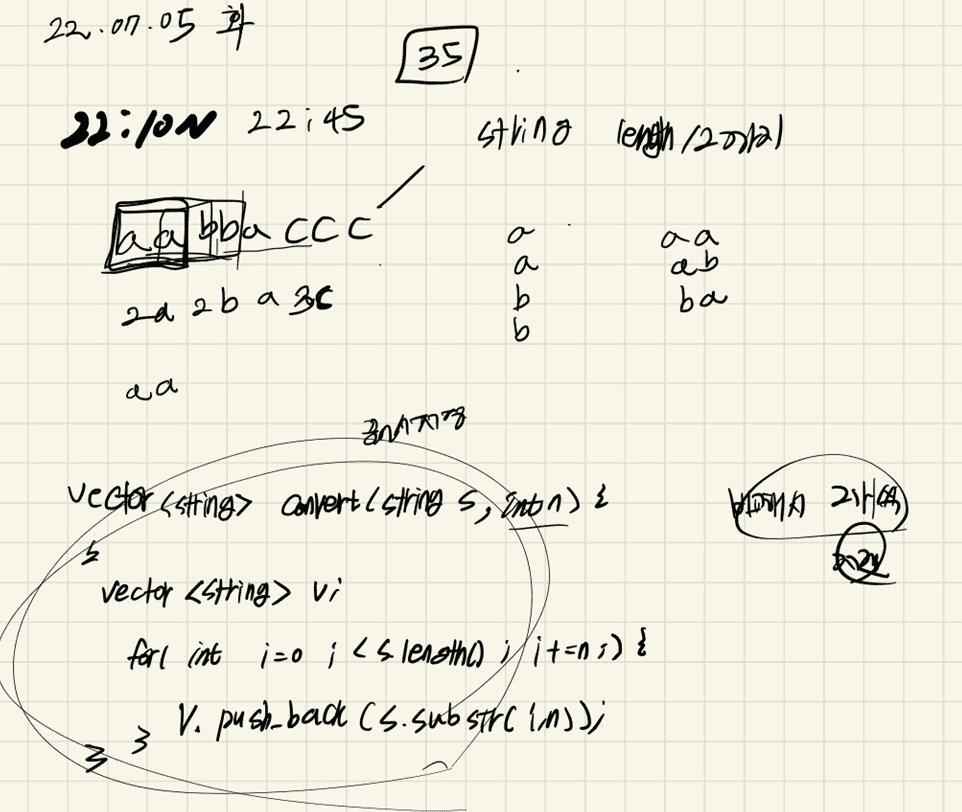 22.07.05 화
35
22:10 22:45
string length/2
aabbaccc
2a2ba3c
a aa
a ab
b ba
b
aa
vector<string> convert(string s, int n) {
vector<string> v;
for( int i=0 ; < s.length() ; i+=n ;) {
v.push_back (s.substr( i,n));
}
}